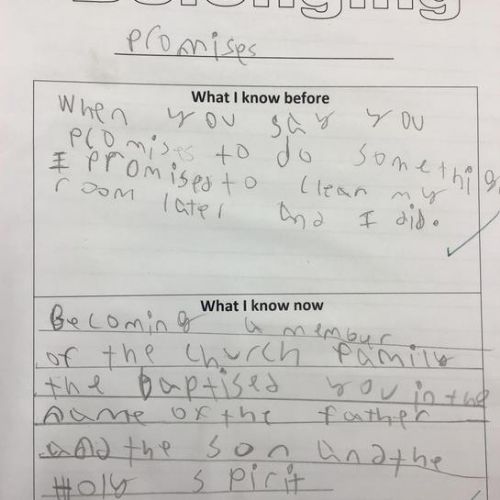 Belonging
promises
What I know before
When you say you
promises to do something
I promised to clean my
room later and I did.
What I know now
Becoming a membur
of the church family
the baptised you in the
name of the father
and the son and the
Holy spirit